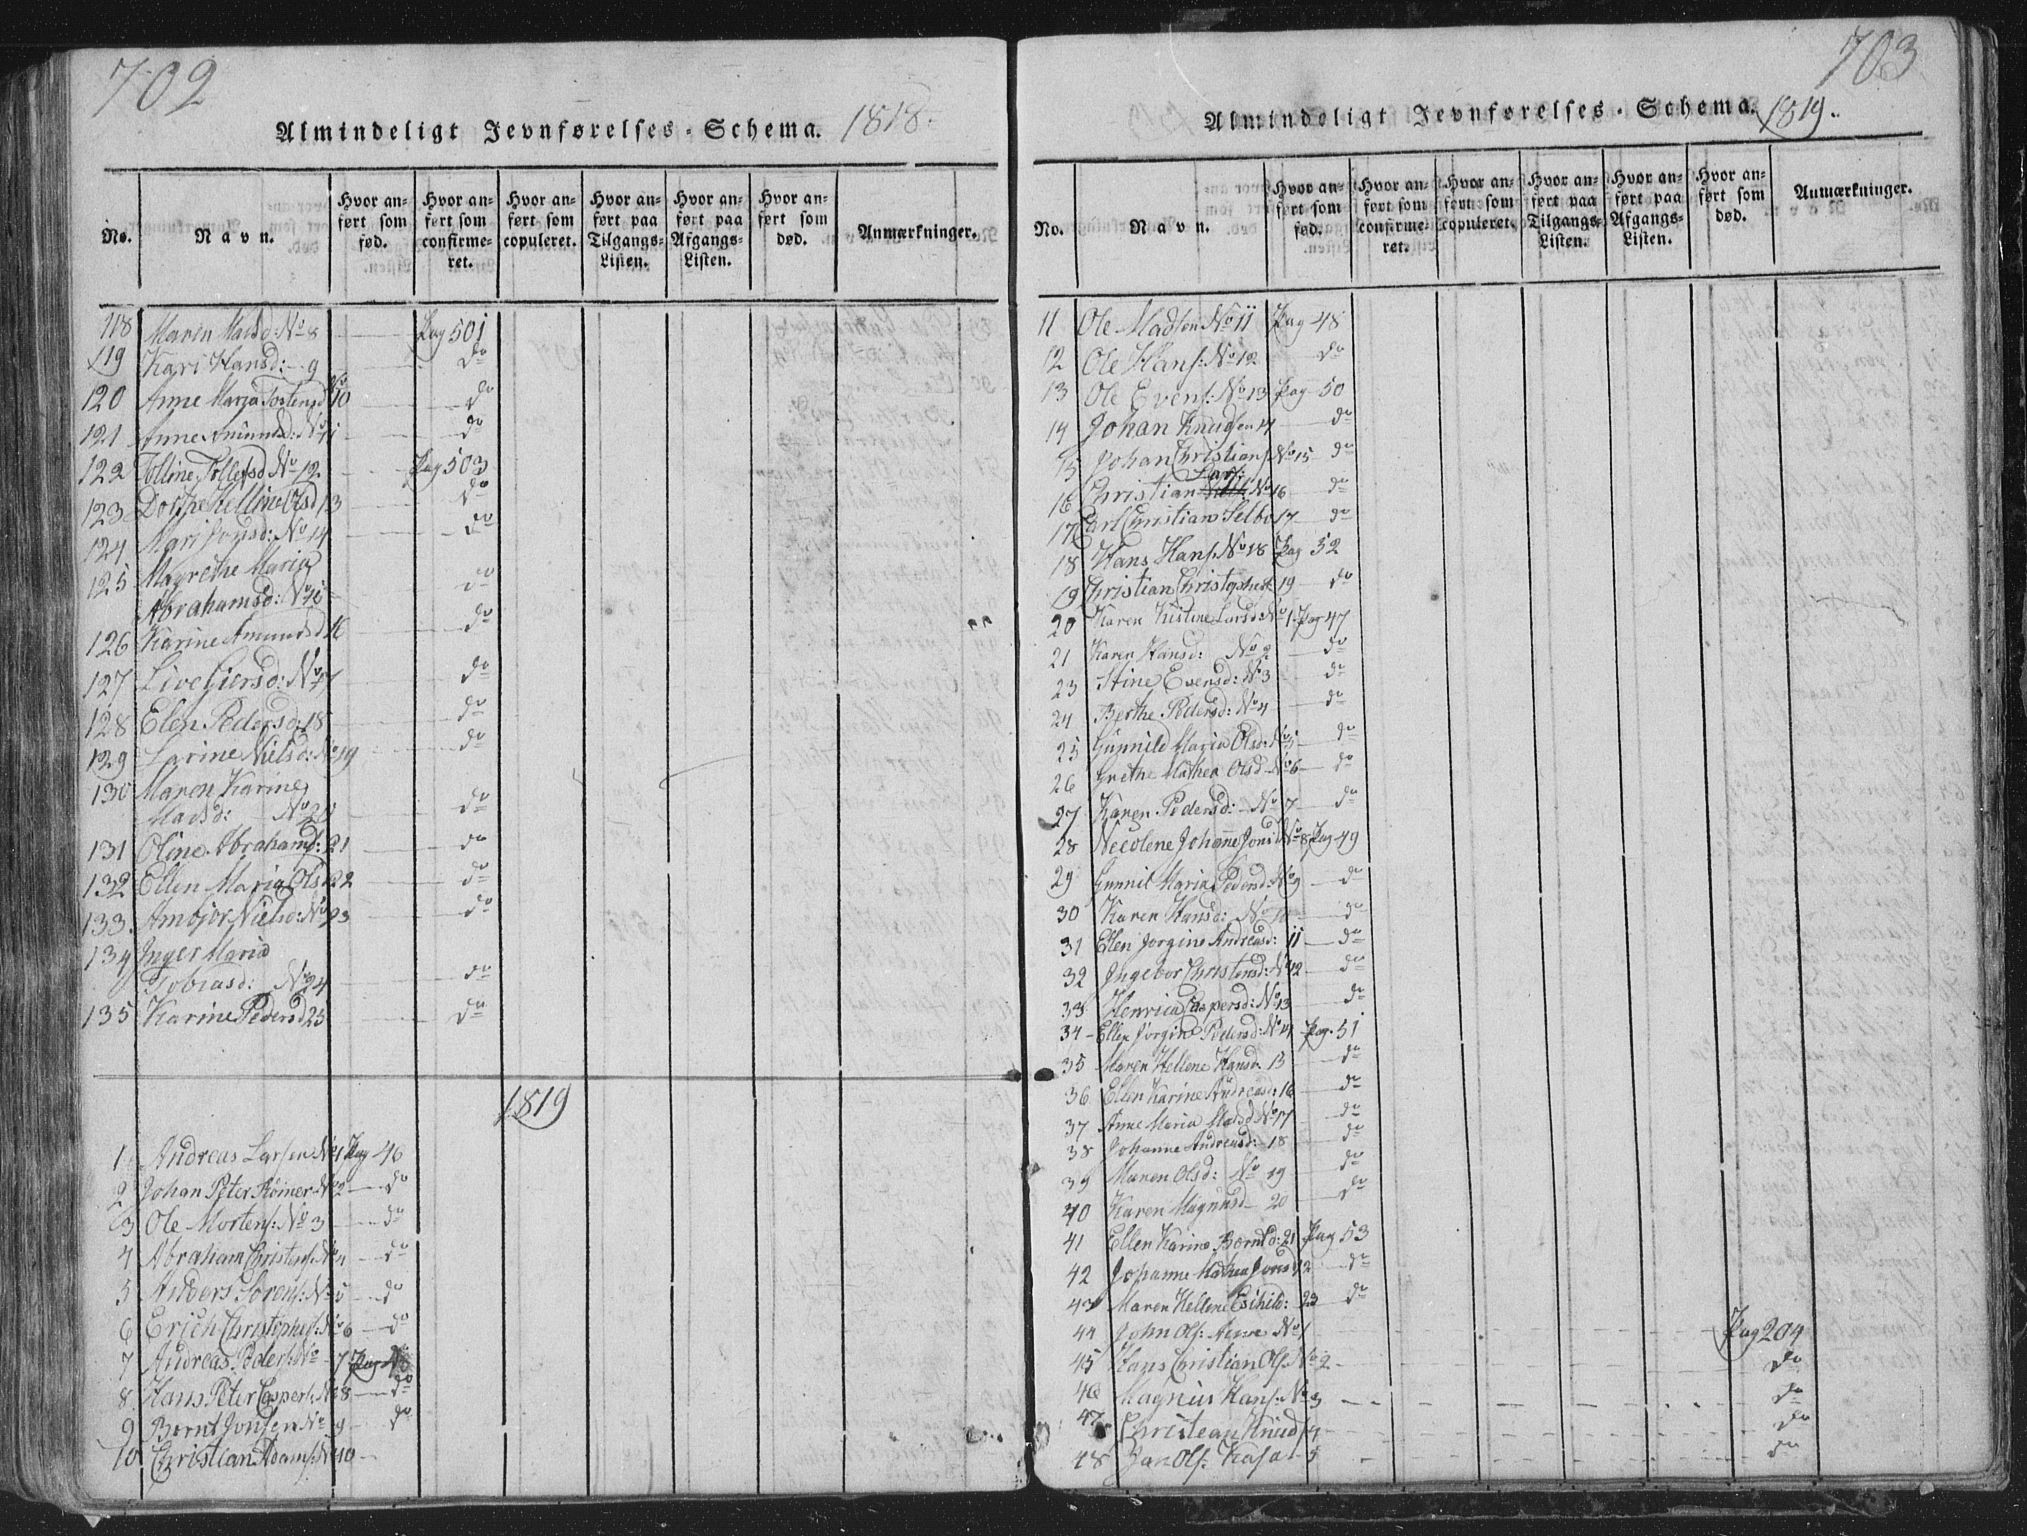 702
Almindeligt Jevnførelses-Schema. 1818.
No.
Navn.
Hvor anført som fød.
Hvor anført som confirmeret.
Hvor anført som copuleret.
Hvor anført paa Tilgangs-Listen.
Hvor anført paa Afgangs-Listen.
Hvor anført som død.
Anmærkninger.
118 Maren Madsd: No 8 Pag 501
119 Kari Hansd: 9 do
120 Anne Maria Tostensd No 10 do
121 Anne Amundsd: No 11 do
122 Tolline Tollefsd No 12 Pag 503
123 Dorthe Helline Olsd 13 do
124 Mari Jonsd: No 14 do
125 Magrethe Maria
Abrahamsd: No 15 do
126 Karine Amundsd 16 do
127 Live Giersd: No 17 do
128 Elen Pedersd: 18 do
129 Larine Nielsd: No 19 do
130 Maren Karine
Madsd: No 20 do
131 Oline Abrahamsd: 21 do
132 Ellen Maria Olsd 22 do
133 Ambjor Nielsd: No 23 do
134 Inger Maria
Tobiasd: No 24 do
135 Karine Pedersd 25 do
1819
1 Andreas Larsen No 1 Pag 46
2 Johan Peter Reimer No 2 do
3 Ole Mortens: No 3 do
4 Abraham Christens: No 4 do
5 Anders Sørens: No 5 do
6 Erich Christophers: No 6 do
7 Andreas Peders: No 7 Pag
8 Hans Peter Caspers: No 8 do
9 Bernt Jonsen No 9 do
10 Christian Adams: No 10
703
Almindeligt Jevnførelses-Schema. 1819.
No.
Navn.
Hvor anført som fød.
Hvor anført som confirmeret.
Hvor anført som copuleret.
Hvor anført paa Tilgangs-Listen.
Hvor anført paa Afgangs-Listen.
Hvor anført som død.
Anmærkninger.
11 Ole Madsen No 11 Pag 48
12 Ole Hans: No 12 do
13 Ole Evens: No 13 Pag 50
14 Johan Knudsen 14 do
15 Johan Christians: No 15 do
Lars:
16 Christian No 16 do
17 Carl Christian Selbo 17 do
18 Hans Hans: No 18 Pag 52
19 Christian Christophers: 19 do
20 Karen Kistine Larsd: No 1 Pag 47
21 Karen Hansd: No 2 do
23 Stine Evensd: No 3 do
24 Berthe Pedersd: No 4 do
25 Gunnild Maria Olsd: No 5 do
26 Grethe Mathea Olsd No 6 do
27 Karen Pedersd: No 7 do
28 Necolene Johanne Jonsd No 8 Pag 49
29 Gunnil Maria Pedersd: No 9 do
30 Karen Hansd: No 10 do
31 Ellen Jorgine Andreasd: 11 do
32 Ingebor Christensd: No 12 do
33 Henrica Caspersd: No 13 do
34 Ellen Jorgine Pedersd: No 14 Pag. 51
35 Maren Hellene Hansd 15 do
36 Ellen Karine Andreasd: 16 do
37 Anne Maria Madsd No 17 do
38 Johanne Andreasd: 18 do
39 Maren Olsd: No 19 do
40 Karen Magnusd 20 do
41 Ellen Karine Berntsd: 21 Pag 53
42 Johanne Mathea Jonsd 22 do
43 Maren Hellene Eschild: 23 do
44 John Ols: No 1 Pag 204
45 Hans Christian Ols: No 2 do
46 Magnus Hans: No 3 do
47 Christean Knuds 4 do
48 Ols: Kasa 5 do